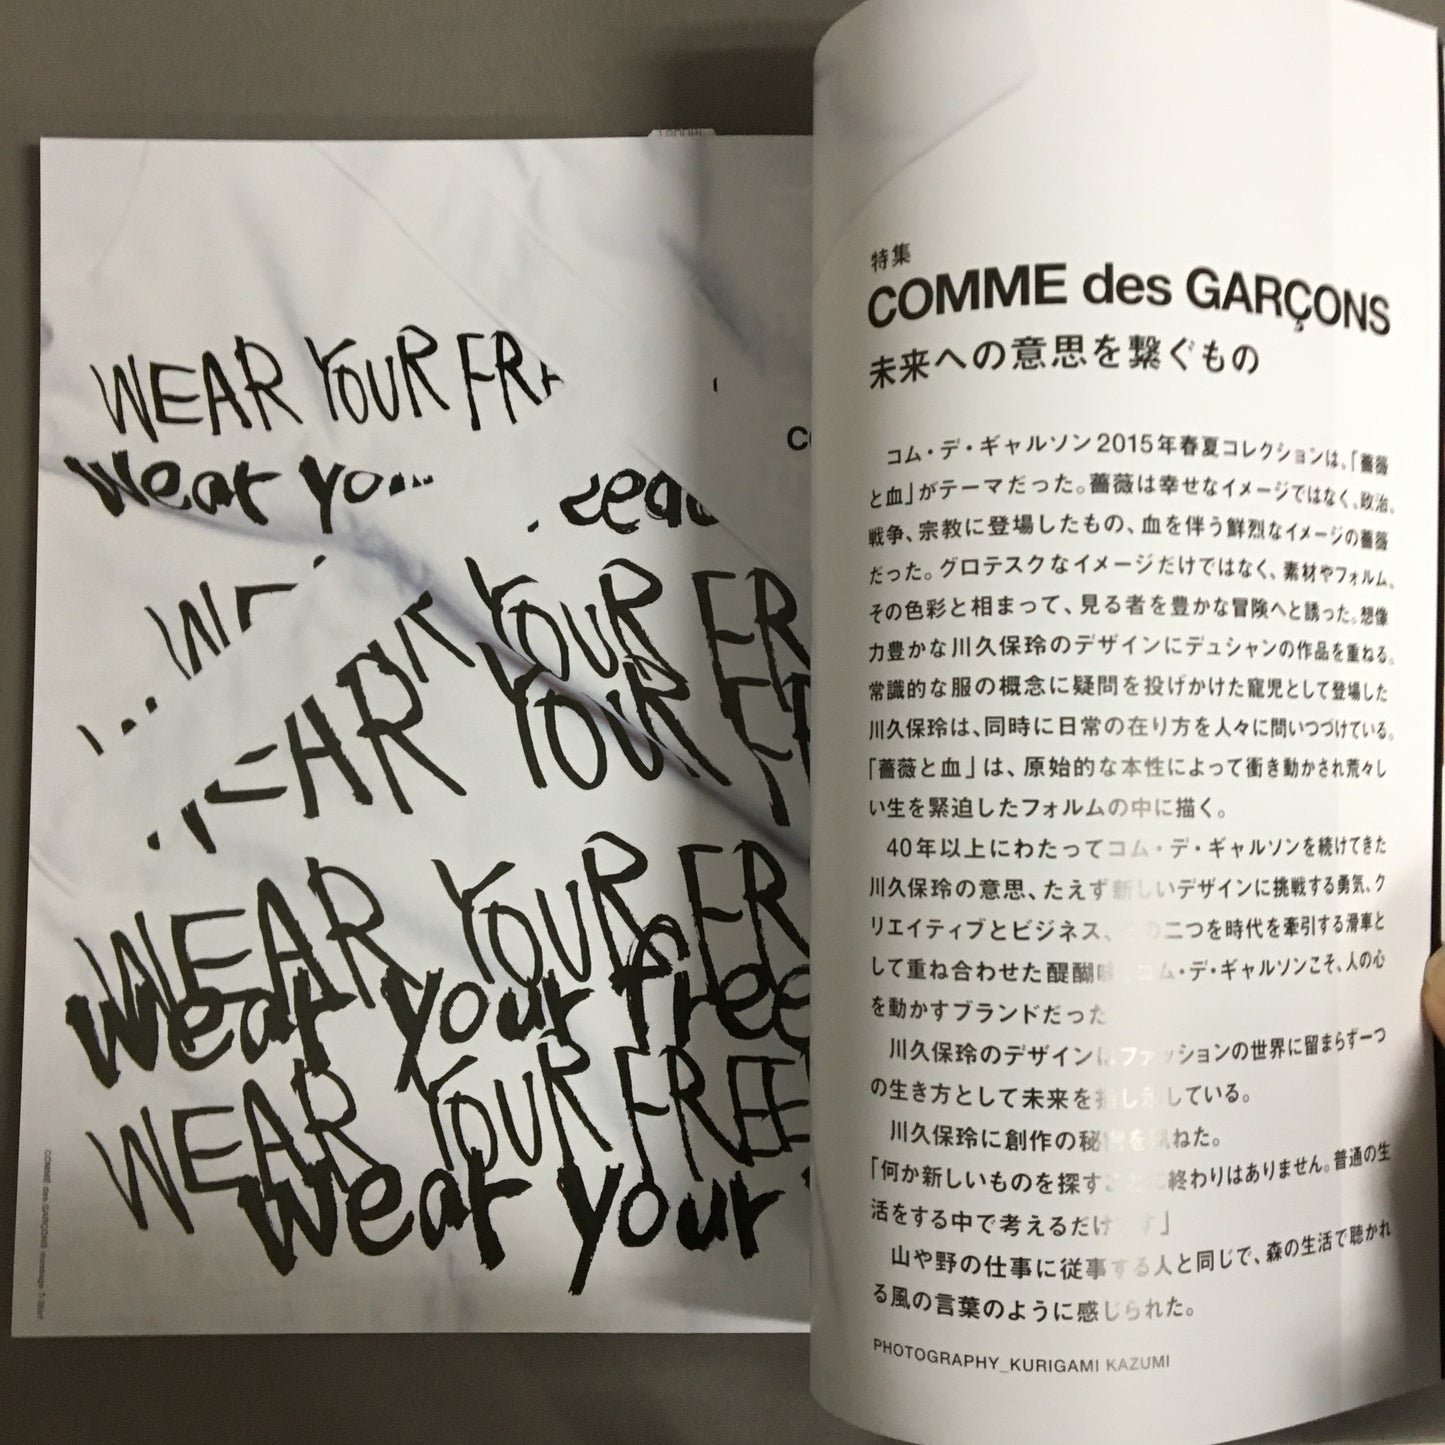 WEAR YOUR FR
wear yo
YOUR FR
EAR YOUR
WEAR YOUR FR
wear your free
WEAR YOUR FREE
wear your
COMME des GARÇONS message T-Shirt
特集
COMME des GARÇONS
未来への意思を繋ぐもの
コム・デ・ギャルソン2015年春夏コレクションは、「薔薇
と血」がテーマだった。薔薇は幸せなイメージではなく、政治、
戦争、宗教に登場したもの、血を伴う鮮烈なイメージの薔薇
だった。グロテスクなイメージだけではなく、素材やフォルム、
その色彩と相まって、見る者を豊かな冒険へと誘った。想像
力豊かな川久保玲のデザインにデュシャンの作品を重ねる。
常識的な服の概念に疑問を投げかけた寵児として登場した
川久保玲は、同時に日常の在り方を人々に問いつづけている。
「薔薇と血」は、原始的な本性によって衝き動かされ荒々し
い生を緊迫したフォルムの中に描く。
40年以上にわたってコム・デ・ギャルソンを続けてきた
川久保玲の意思、たえず新しいデザインに挑戦する勇気、ク
リエイティブとビジネス、の二つを時代を牽引する滑車と
して重ね合わせた醍醐味、コム・デ・ギャルソンこそ、人の心
を動かすブランドだった
川久保玲のデザインはファッションの世界に留まらず一つ
の生き方として未来を指し示している。
川久保玲に創作の秘密を訊ねた。
「何か新しいものを探すことに終わりはありません。普通の生
活をする中で考えるだけです」
山や野の仕事に従事する人と同じで、森の生活で聴かれ
る風の言葉のように感じられた。
PHOTOGRAPHY_KURIGAMI KAZUMI